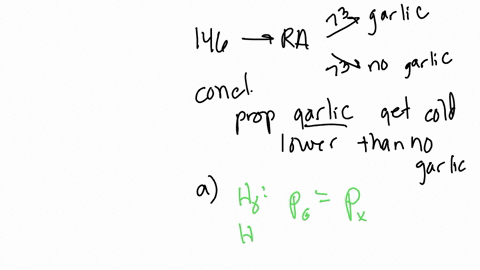 73 garlic
146 → RA
73 no garlic
concl.
prop garlic get cold
lower than no
garlic
a) H₀: p_G = p_x
H